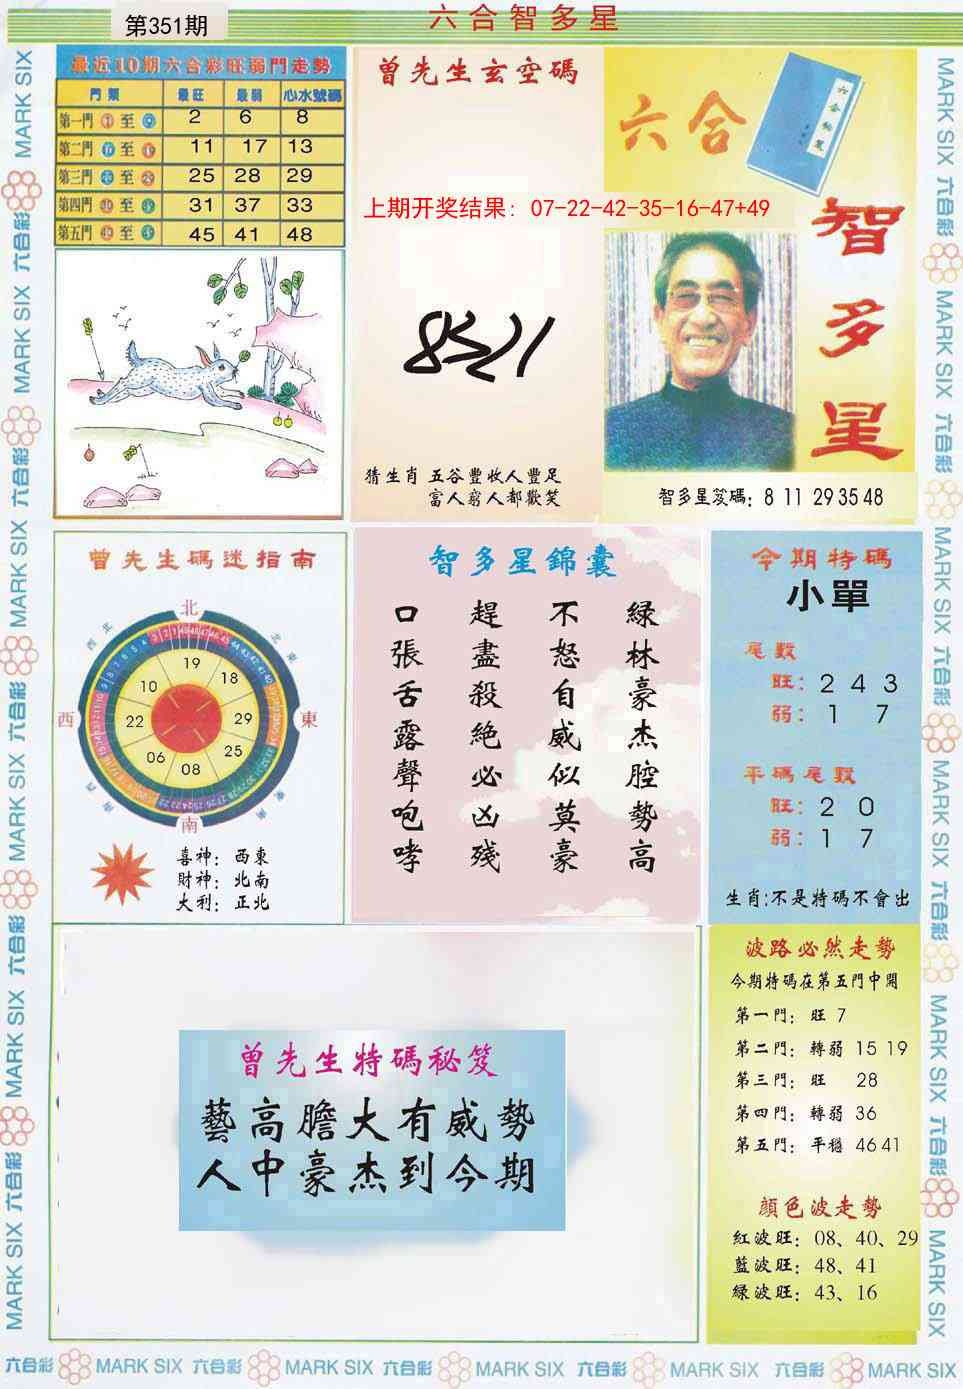 第351期
六合智多星
最近10期六合彩旺弱門走勢
門類 最旺 最弱 心水號碼
第一門 至 2 6 8
第二門 至 11 17 13
第三門 至 25 28 29
第四門 至 31 37 33
第五門 至 45 41 48
曾先生玄空碼
六合
智多星
上期开奖结果: 07-22-42-35-16-47+49
猜生肖 五谷豐收人豐足
富人窮人都歡笑
智多星笈碼: 8 11 29 35 48
曾先生碼迷指南
北
西北
東北
西
東
南
19
18
29
25
08
06
22
10
喜神: 西東
財神: 北南
大利: 正北
智多星錦囊
綠林豪杰腔勢高
不怒自威似莫豪
趕盡殺絕必凶殘
口張舌露聲咆哮
今期特碼
小單
尾數
旺: 2 4 3
弱: 1 7
平碼尾數
旺: 2 0
弱: 1 7
生肖:不是特碼不會出
曾先生特碼秘笈
藝高膽大有威勢
人中豪杰到今期
波路必然走勢
今期特碼在第五門中開
第一門: 旺 7
第二門: 轉弱 15 19
第三門: 旺 28
第四門: 轉弱 36
第五門: 平穩 46 41
顏色波走勢
紅波旺: 08、40、29
藍波旺: 48、41
綠波旺: 43、16
六合彩 MARK SIX 六合彩 MARK SIX 六合彩 MARK SIX 六合彩 MARK SIX 六合彩 MARK SIX